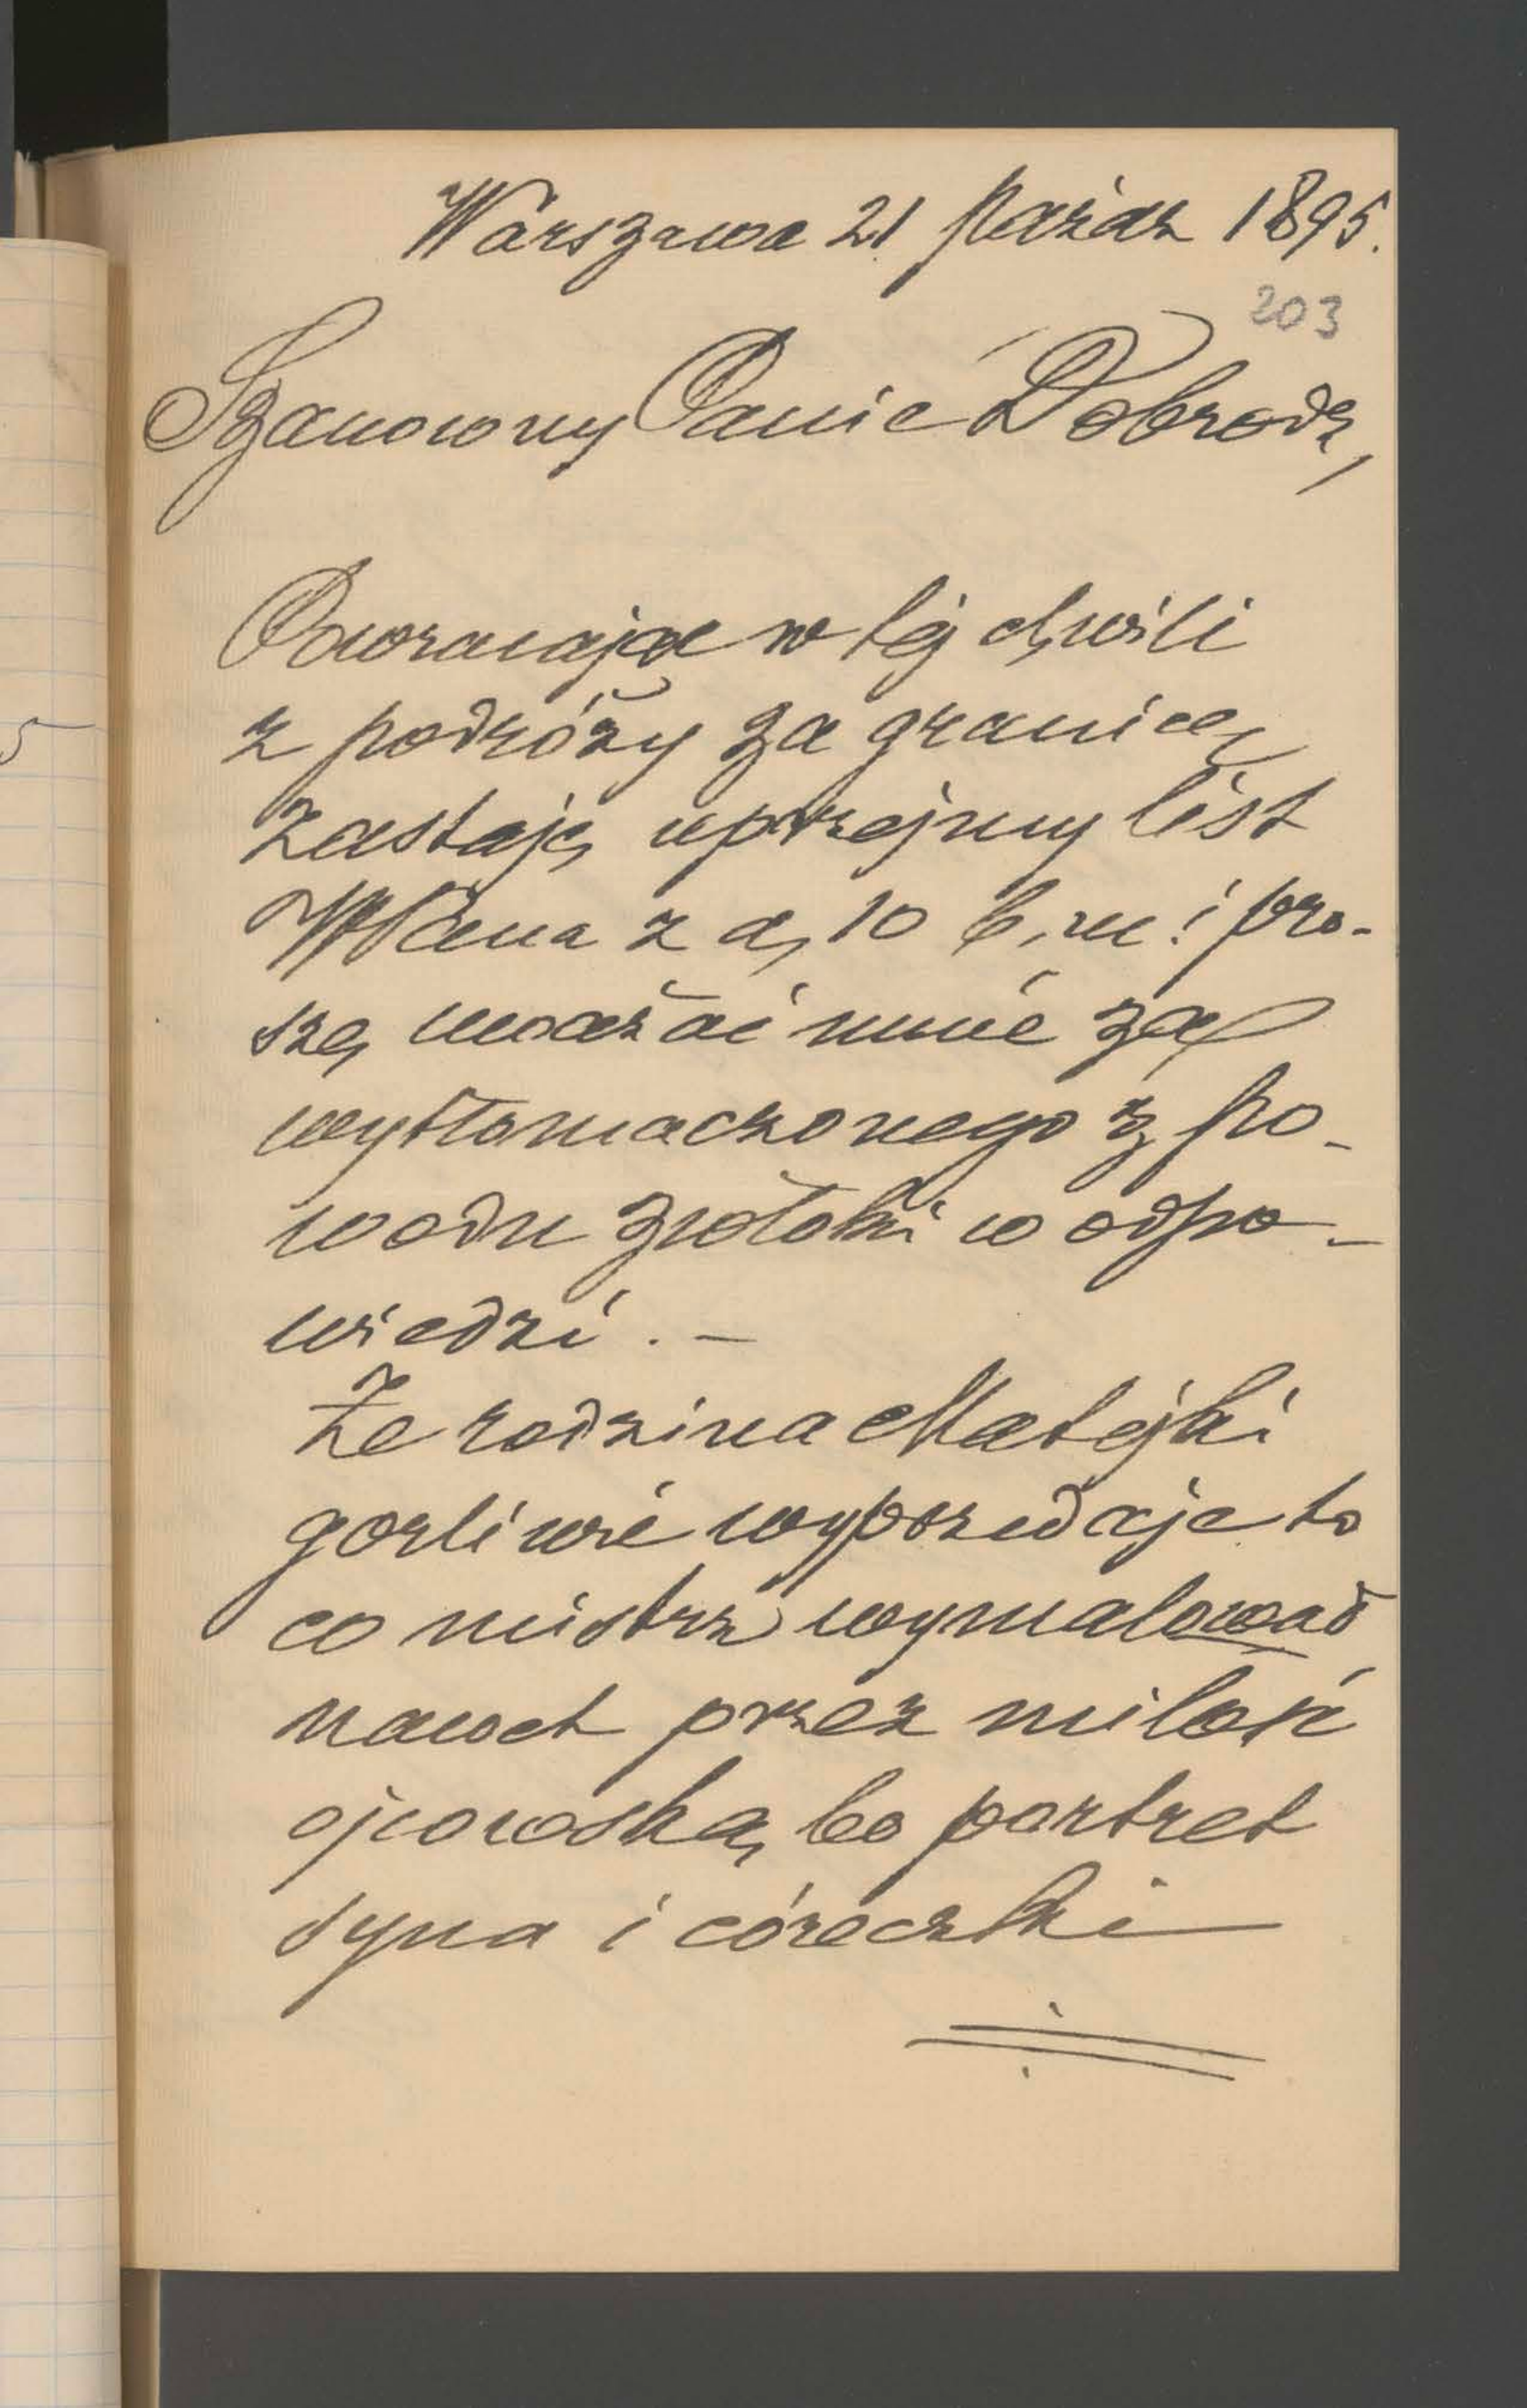 Warszawa 21 Paźdz 1895.
203
Szanowny Panie Dobrodz,
Powracając w tej chwili
z podróży za granicę
zastaję uprzejmy list
WPana z d, 10 b, m i pro-
szę uważać mnie za
wytłomaczonego z po-
wodu zwłoki w odpo-
wiedzi . –
Że rodzina Matejki
gorliwie wyprzedaje to
co mistrz wymalował
nawet przez miłość
ojcowską, bo portret
syna i córeczki
5